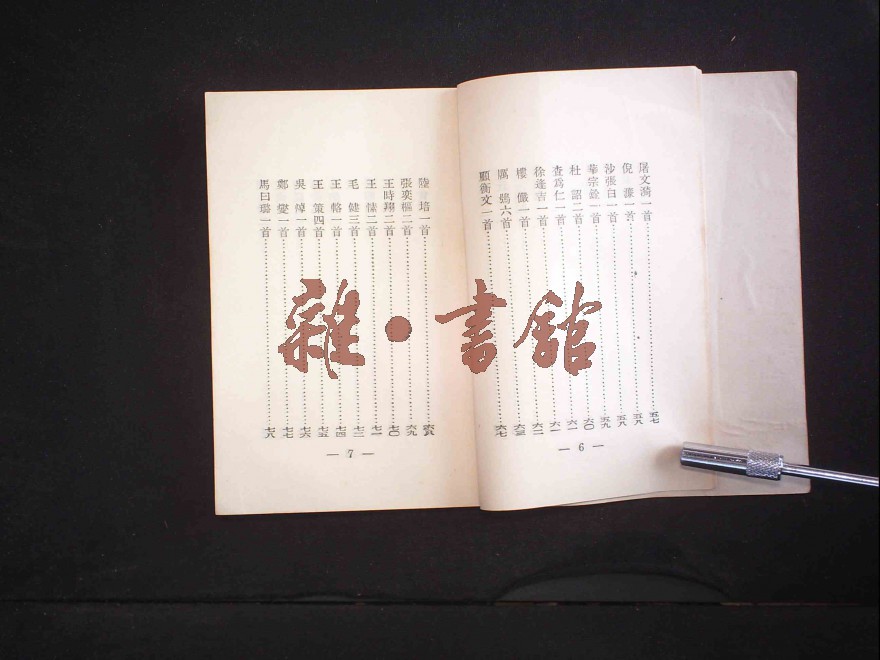 屠文漪一首……五七
倪　濂一首……五八
沙張白一首……五八
華宗鈴一首……五九
杜　詔二首……六〇
查爲仁一首……六一
徐逢吉一首……六一
樓　儼一首……六二
厲　鶚六首……六三
顧衡文一首……六七
— 6 —
陸　培一首……六八
張奕樞二首……六九
王時翔二首……七〇
王　愫二首……七一
毛　健三首……七二
王　輅一首……七四
王　策四首……七五
吳　焯一首……七六
鄭　燮一首……七七
馬曰璐一首……七八
— 7 —
雜·書館